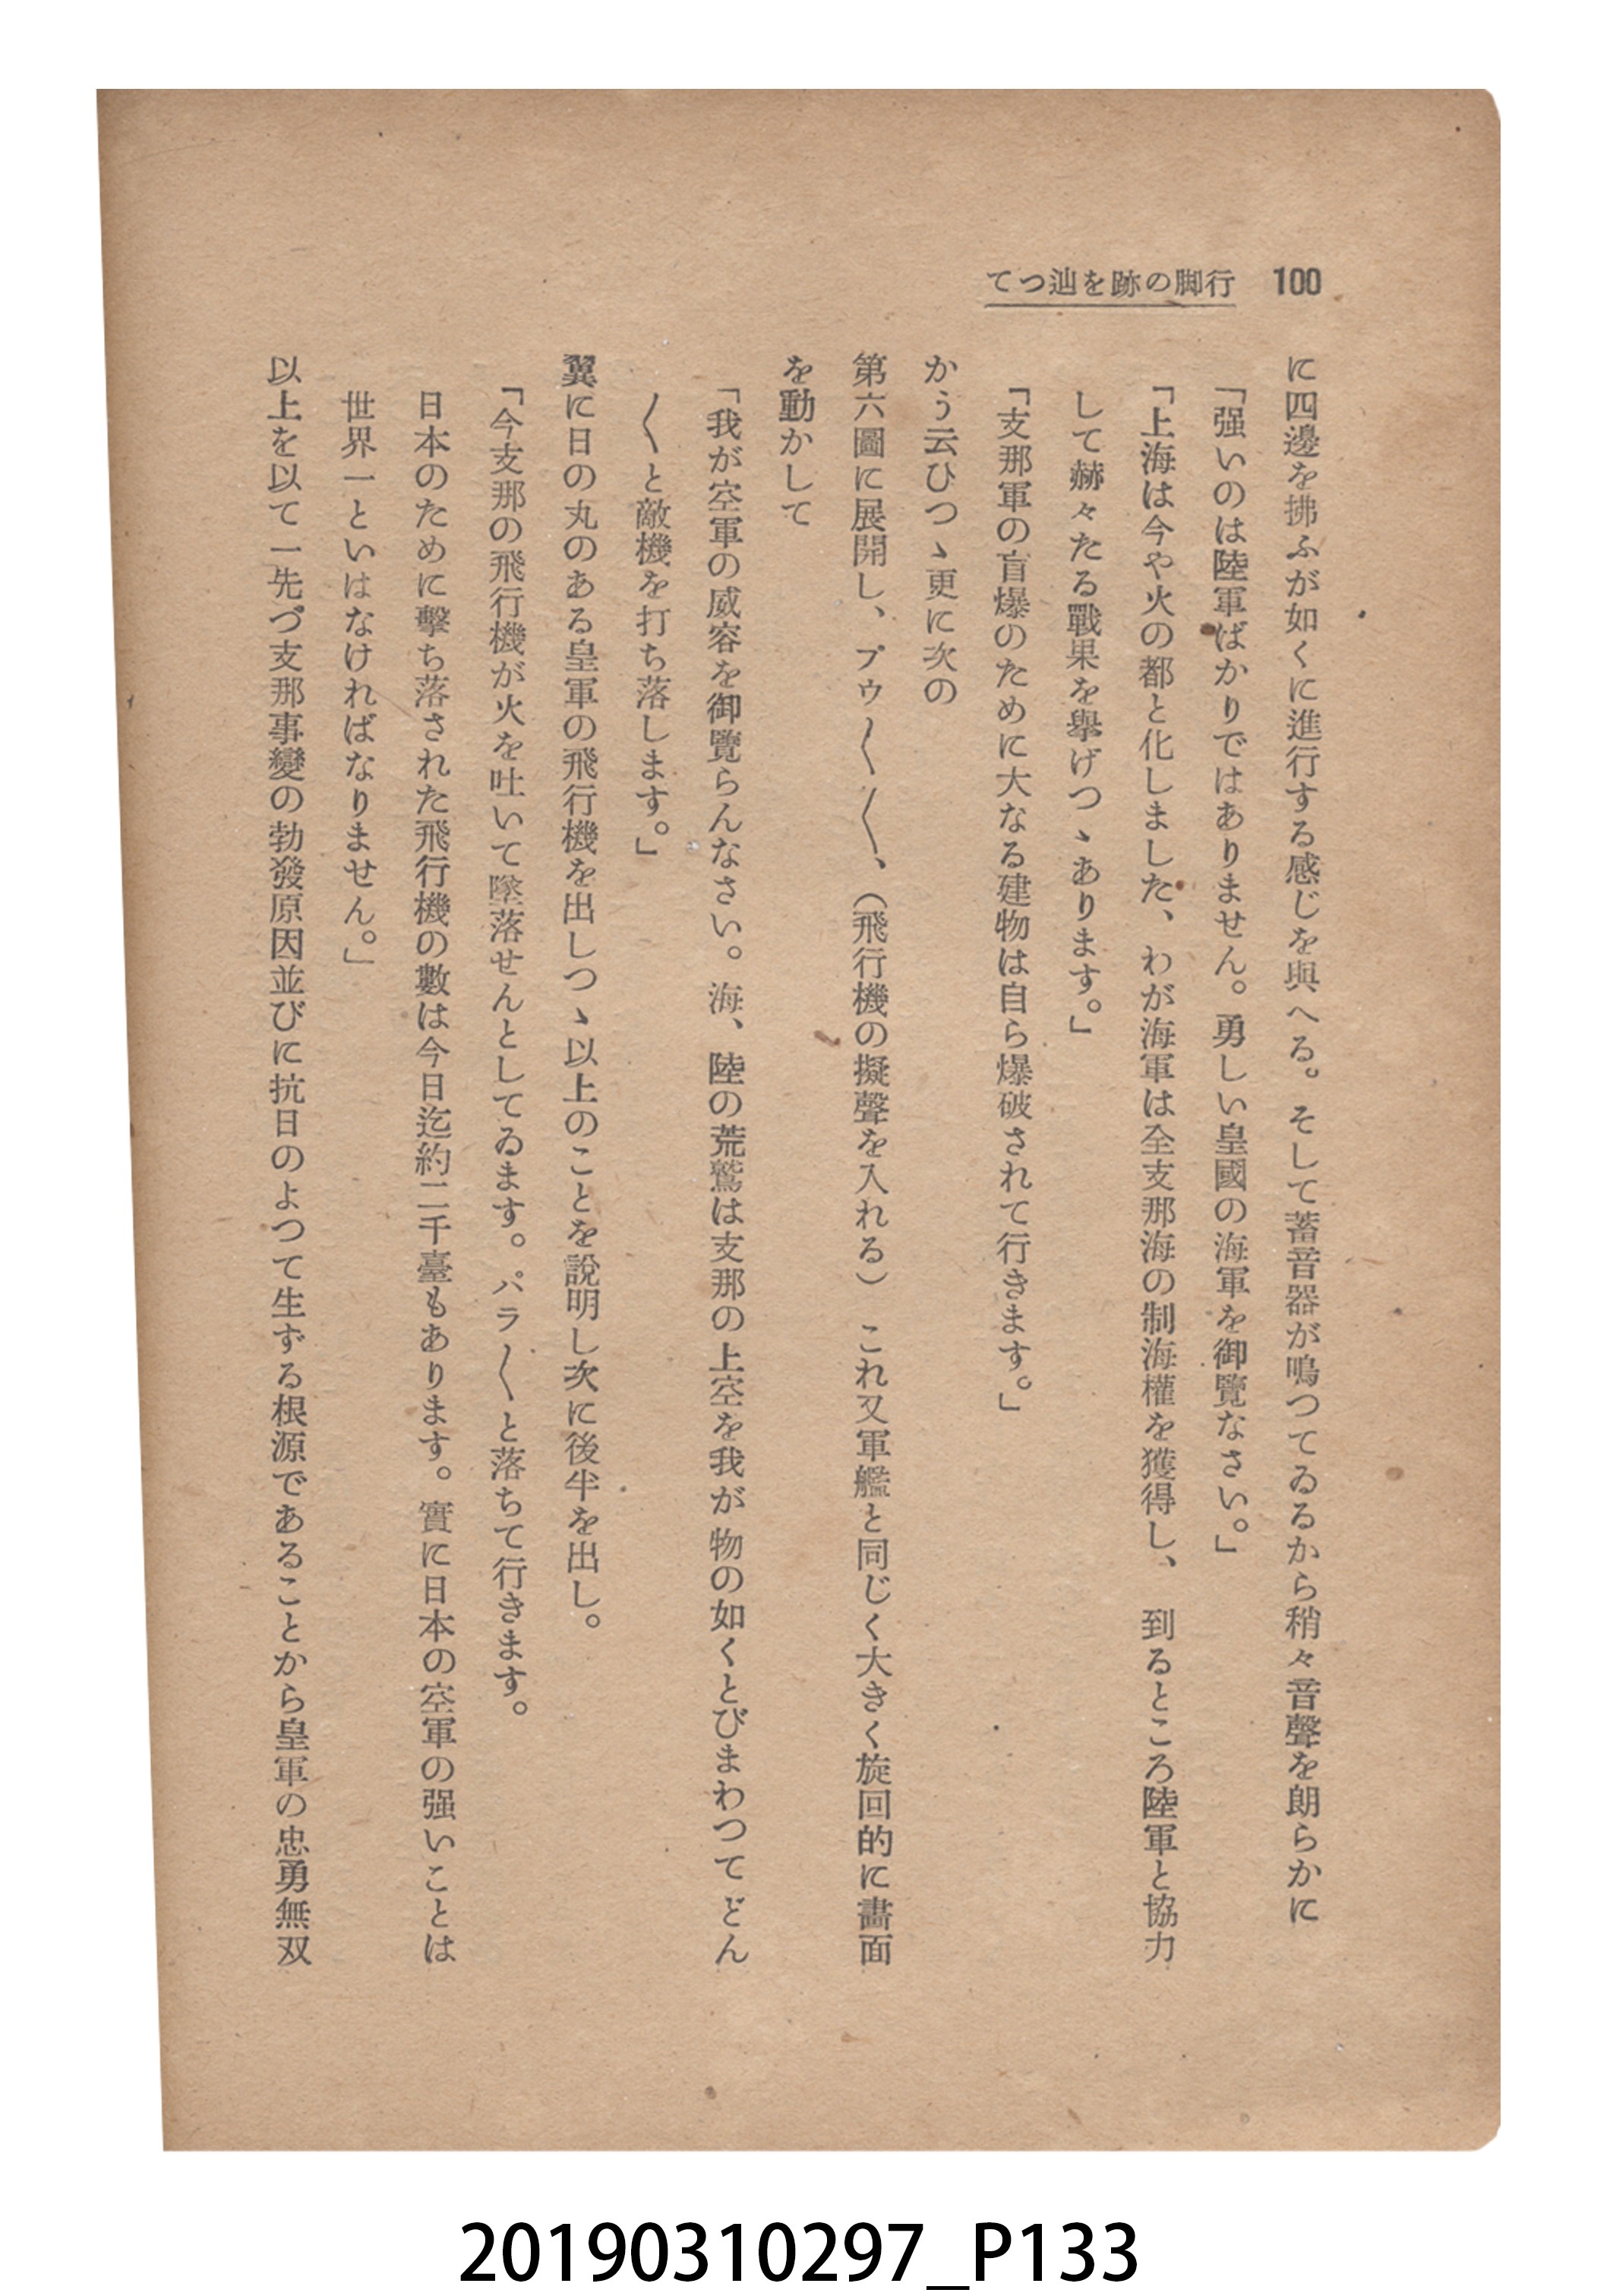 100 行脚の跡を辿つて
に四邊を拂ふが如くに進行する感じを與へる。そして蓄音器が鳴つてゐるから稍々音聲を朗らかに
「强いのは陸軍ばかりではありません。勇しい皇國の海軍を御覽なさい。」
「上海は今や火の都と化しました、わが海軍は全支那海の制海權を獲得し、到るところ陸軍と協力
して赫々たる戰果を擧げつゝあります。」
「支那軍の盲爆のために大なる建物は自ら爆破されて行きます。」
かう云ひつゝ更に次の
第六圖に展開し、プゥ〱〱、（飛行機の擬聲を入れる）これ又軍艦と同じく大きく旋回的に畫面
を動かして
「我が空軍の威容を御覽らんなさい。海、陸の荒鷲は支那の上空を我が物の如くとびまわつてどん
〱と敵機を打ち落します。」
翼に日の丸のある皇軍の飛行機を出しつゝ以上のことを說明し次に後半を出し。
「今支那の飛行機が火を吐いて墜落せんとしてゐます。パラ〱と落ちて行きます。
日本のために擊ち落された飛行機の數は今日迄約二千臺もあります。實に日本の空軍の强いことは
世界一といはなければなりません。」
以上を以て一先づ支那事變の勃發原因並びに抗日のよつて生ずる根源であることから皇軍の忠勇無双
20190310297_P133